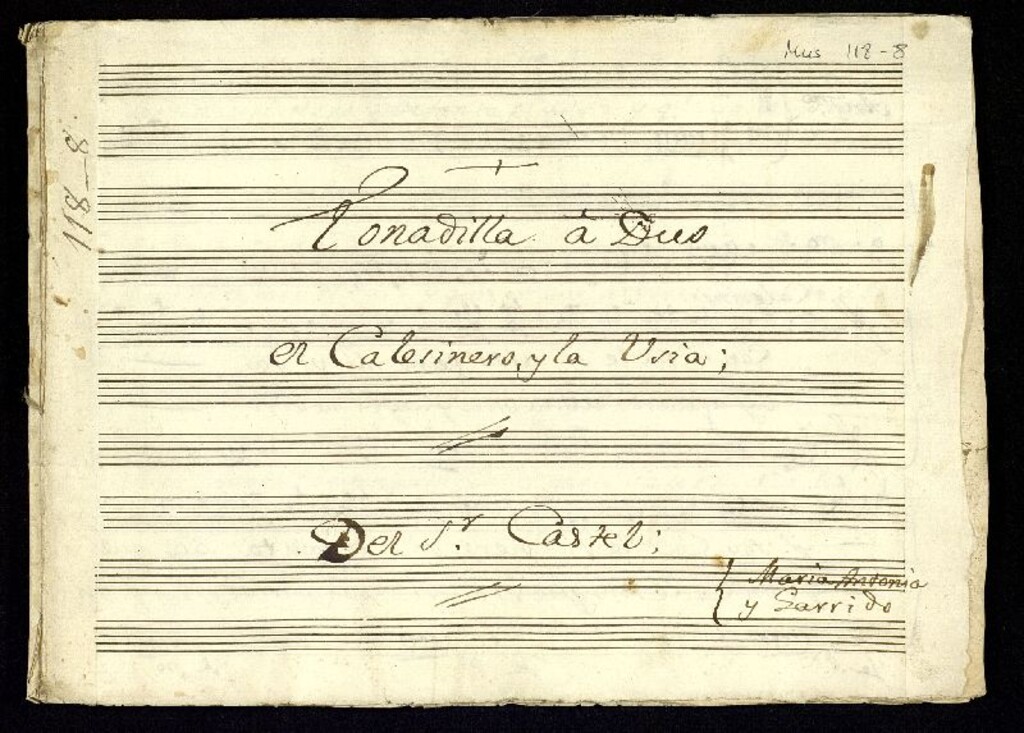 Mus 118-8
118-8
Tonadilla à Duo
el Calesinero, y la Usia;
Del Sr. Castel;
Maria Antonia
y Garrido